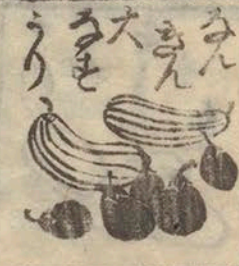 なん
きん
大
なすび
うり